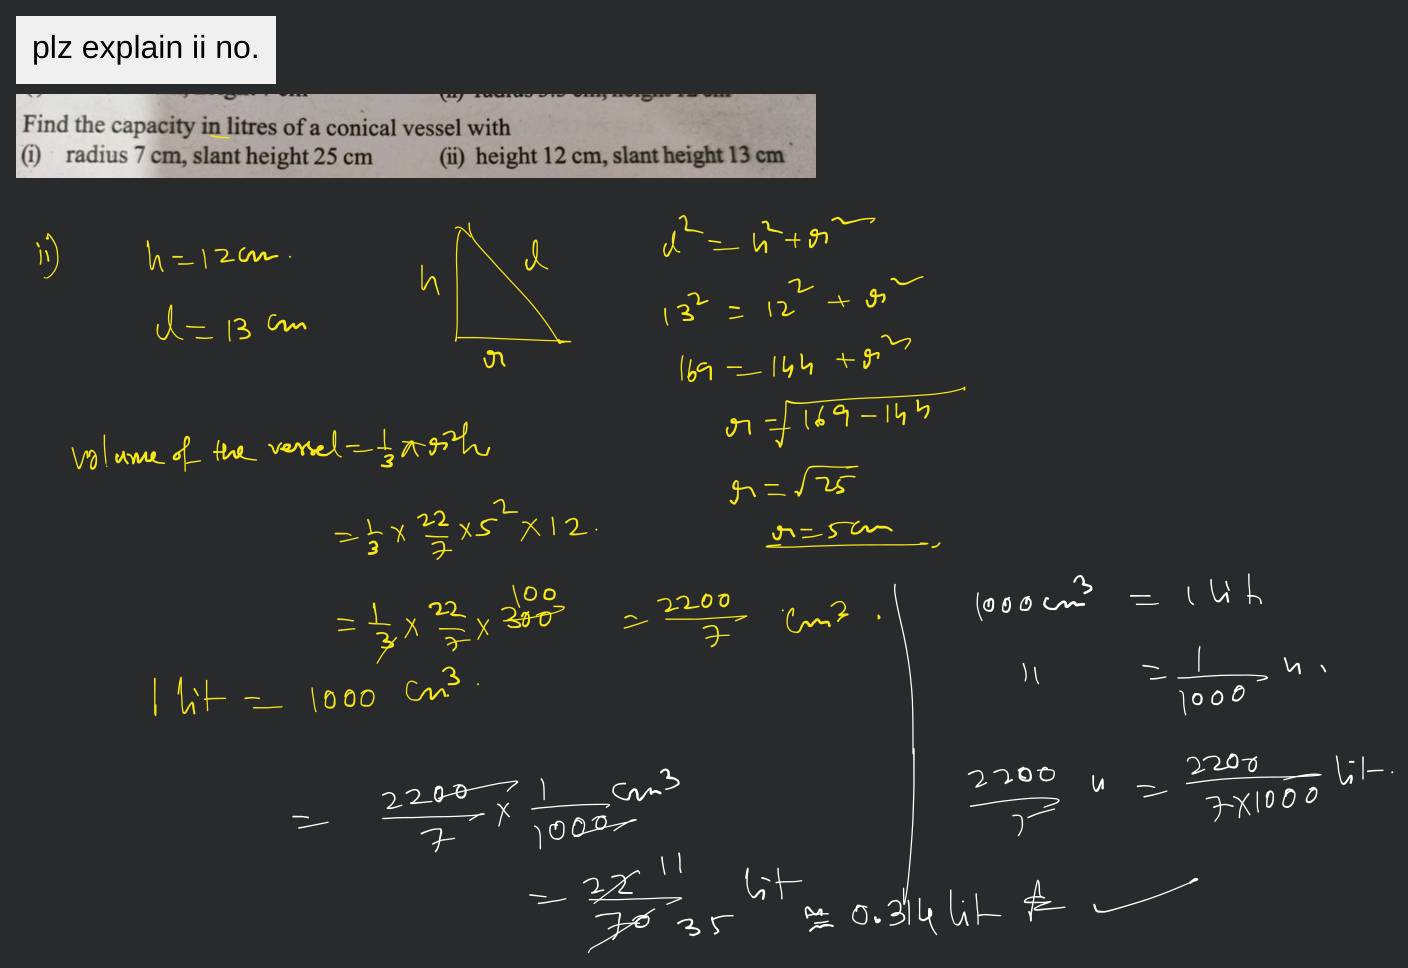 plz explain ii no.
Find the capacity in litres of a conical vessel with
(i) radius 7 cm, slant height 25 cm (ii) height 12 cm, slant height 13 cm
ii) h = 12 cm.
l = 13 cm
h l
r
l² = h² + r²
13² = 12² + r²
169 = 144 + r²
r = √169 - 144
r = √25
r = 5 cm
volume of the vessel = 1/3 π r² h
= 1/3 × 22/7 × 5² × 12.
= 1/3 × 22/7 × 300 100 = 2200/7 cm³.
1 lit = 1000 cm³.
= 2200/7 × 1/1000 cm³
= 22/70 11 35 lit ≈ 0.314 lit
1000 cm³ = 1 lit
1 " = 1/1000 ".
2200/7 " = 2200/7×1000 lit.